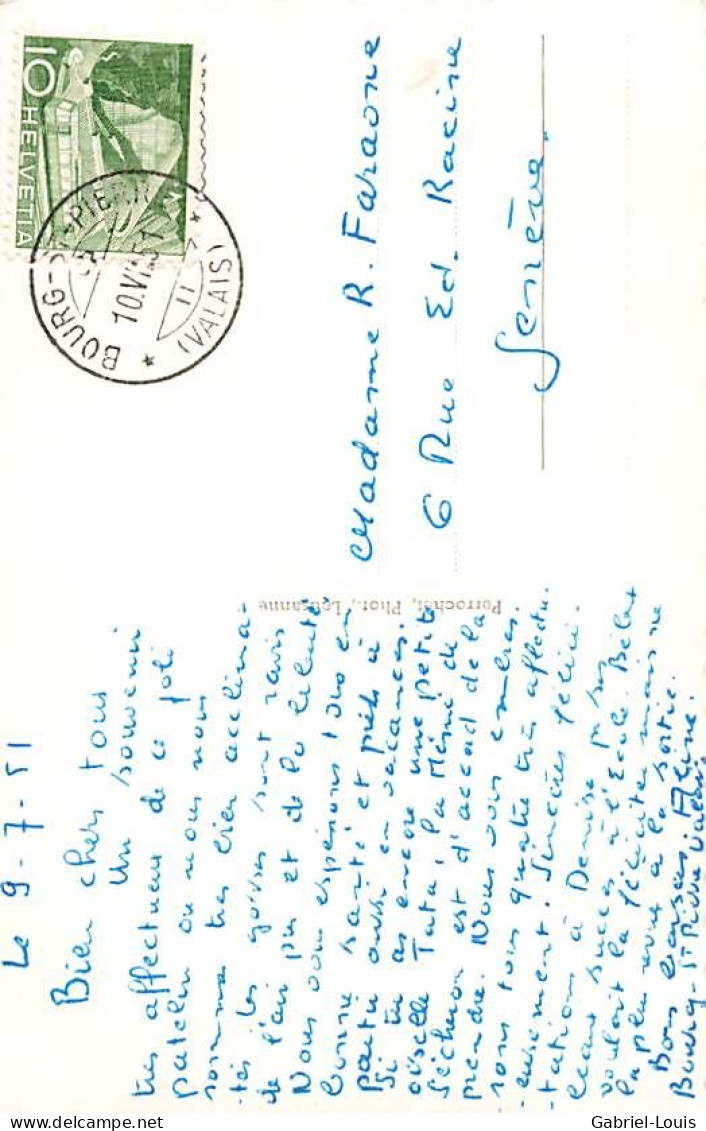 Le 9-7-51
Bien chers tous
Un souvenir
très affectueux de ce joli
patelin ou nous nous
sommes très bien acclima-
tés, les gosses sont ravis
de l'air pur et de la liberté
Nous vous espérons tous en
bonne santé et prêts à
partir aussi en vacances.
Si tu as encore une petite
oiselle Tata, la Mémé de
Sécheron est d'accord de la
prendre. Nous vous embras-
sons tous quatre très affectu-
eusement. Sincères félici-
tations à Denise pr son
beau succès à l'Ecole. Bébert
voulait la féliciter mais ne
l'a plus revue à la sortie.
Bons baisers Aline.
Bourg-St Pierre Valais.
Madame R. Faraone
6 Rue Ed. Racine
Genève.
Perrochet, Phot., Lausanne
10
HELVETIA
BOURG-ST-PIERRE
10.VII.51
11
(VALAIS)
delcampe.net
Gabriel-Louis